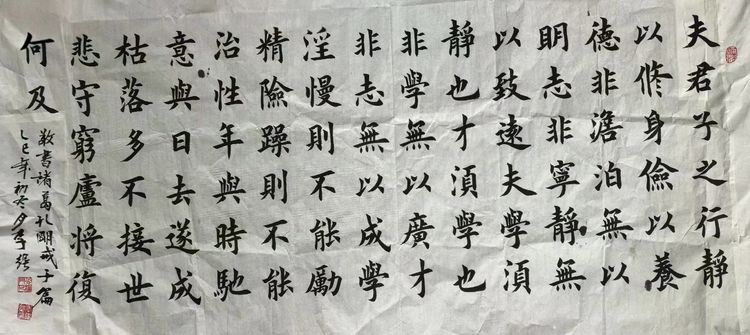 夫君子之行靜
以修身儉以養
德非澹泊無以
眀志非寧靜無
以致遠夫學湏
靜也才湏學也
非學無以廣才
非志無以成學
淫慢則不能勵
精險躁則不能
治性年與時馳
意與日去遂成
枯落多不接世
悲守窮廬將復
何及
敬書諸葛孔眀誡子篇
乙巳年初冬月